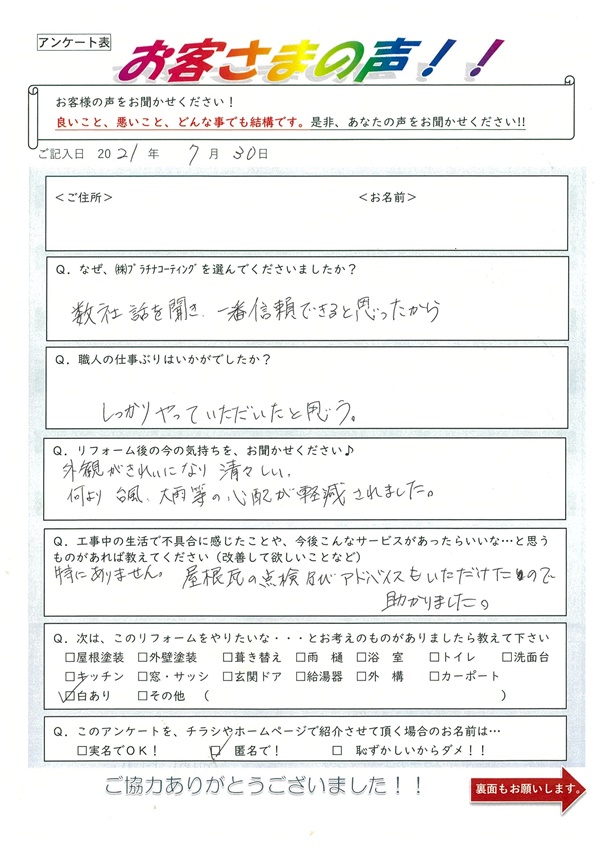 アンケート表
お客さまの声！！
お客様の声をお聞かせください！
良いこと、悪いこと、どんな事でも結構です。是非、あなたの声をお聞かせください!!
ご記入日 2021年 7月 30日
＜ご住所＞ ＜お名前＞
Q．なぜ、㈱ﾌﾟﾗﾁﾅｺｰﾃｨﾝｸﾞを選んでくださいましたか？
数社話を聞き、一番信頼できると思ったから
Q．職人の仕事ぶりはいかがでしたか？
しっかりやっていただいたと思う。
Q．リフォーム後の今の気持ちを、お聞かせください♪
外観がきれいになり清々しい、
何より台風、大雨等の心配が軽減されました。
Q．工事中の生活で不具合に感じたことや、今後こんなサービスがあったらいいな…と思う
ものがあれば教えてください（改善して欲しいことなど）
特にありません。屋根瓦の点検及びアドバイスもいただけたので
助かりました。
Q．次は、このリフォームをやりたいな・・・とお考えのものがありましたら教えて下さい
□屋根塗装 □外壁塗装 □葺き替え □雨 樋 □浴 室 □トイレ □洗面台
□キッチン □窓・サッシ □玄関ドア □給湯器 □外 構 □カーポート
☑白あり □その他 （ ）
Q．このアンケートを、チラシやホームページで紹介させて頂く場合のお名前は…
□実名でＯＫ！ ☑ 匿名で！ □ 恥ずかしいからダメ！！
ご協力ありがとうございました！！
裏面もお願いします。